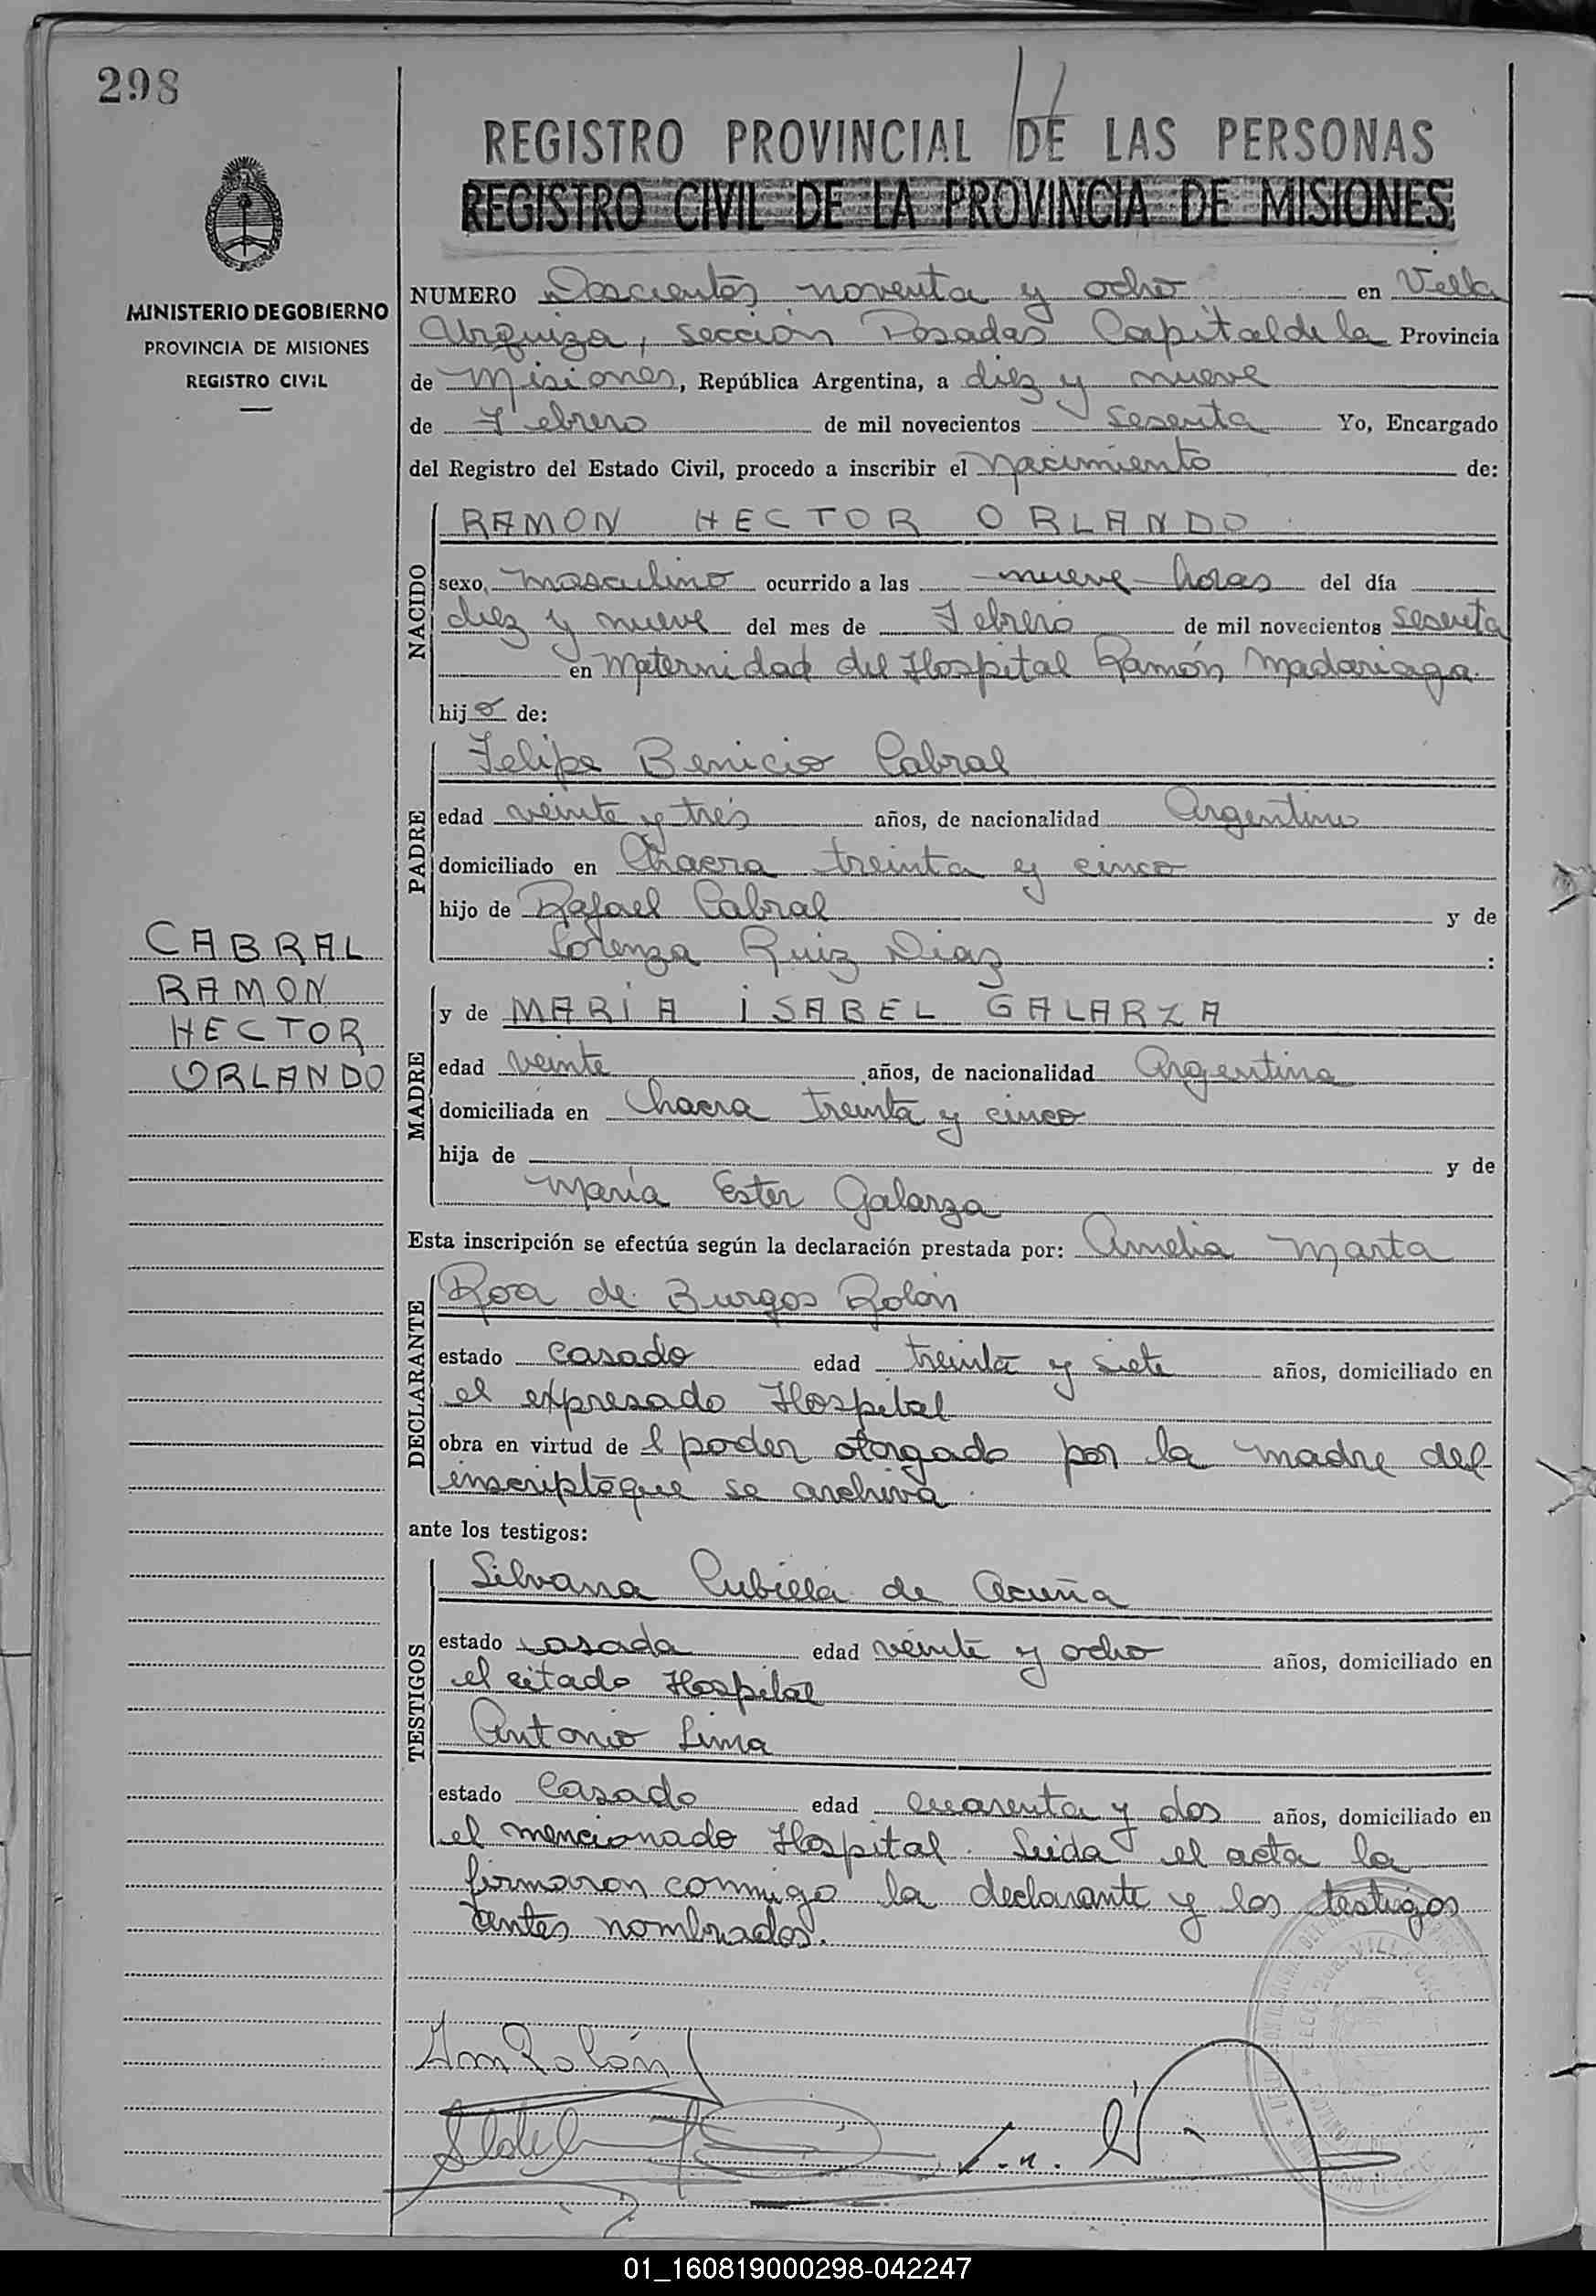 298
REGISTRO PROVINCIAL DE LAS PERSONAS
REGISTRO CIVIL DE LA PROVINCIA DE MISIONES
MINISTERIO DE GOBIERNO
PROVINCIA DE MISIONES
REGISTRO CIVIL
NUMERO Doscientos noventa y ocho en Villa
Urquiza, sección Posadas Capital de la Provincia
de Misiones, República Argentina, a diez y nueve
de Febrero de mil novecientos sesenta Yo, Encargado
del Registro del Estado Civil, procedo a inscribir el Nacimiento de:
NACIDO
RAMON HECTOR ORLANDO
sexo, masculino ocurrido a las nueve horas del día
diez y nueve del mes de Febrero de mil novecientos sesenta
en Maternidad del Hospital Ramón Madariaga
hijo de:
PADRE
Felipe Benicio Cabral
edad veinte y tres años, de nacionalidad Argentino
domiciliado en Chacra treinta y cinco
hijo de Rafael Cabral y de
Lorenza Ruiz Diaz :
CABRAL
RAMON
HECTOR
ORLANDO
MADRE
y de MARIA ISABEL GALARZA
edad veinte años, de nacionalidad Argentina
domiciliada en Chacra treinta y cinco
hija de y de
María Ester Galarza
Esta inscripción se efectúa según la declaración prestada por: Amelia Marta
DECLARANTE
Roa de Burgos Rolón
estado casado edad treinta y siete años, domiciliado en
el expresado Hospital
obra en virtud de l poder otorgado por la madre del
inscripto que se archiva
ante los testigos:
TESTIGOS
Silvana Cubilla de Acuña
estado casada edad veinte y ocho años, domiciliado en
el citado Hospital
Antonio Lima
estado Casado edad cuarenta y dos años, domiciliado en
el mencionado Hospital. Leida el acta la
firmaron conmigo la declarante y los testigos
antes nombrados.
Rolón
01_160819000298-042247